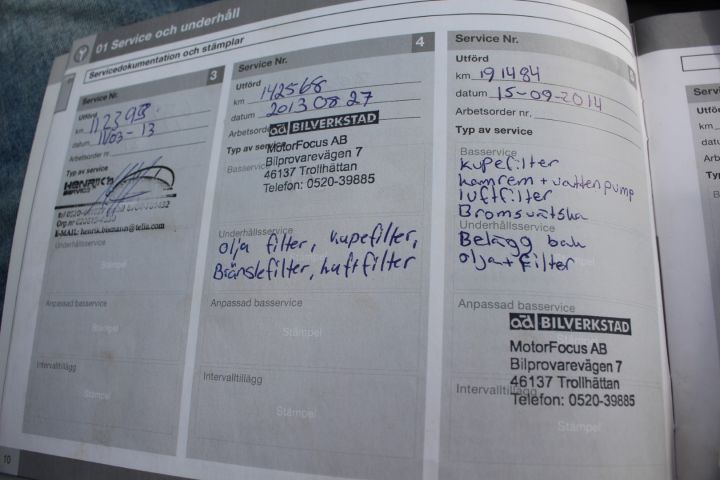 01 Service och underhåll
Servicedokumentation och stämplar
3
Service Nr.
Utförd
km
datum 11/03-13
Arbetsorder nr
Typ av service
HENRICH
E-MAIL: henrik.bismann@telia.com
Underhållsservice
Stämpel
Anpassad basservice
Stämpel
Intervalltillägg
Stämpel
4
Service Nr.
Utförd
km 142568
datum 2013 08 27
Arbetsorder
ad BILVERKSTAD
Typ av service
MotorFocus AB
Bilprovarevägen 7
46137 Trollhättan
Telefon: 0520-39885
Underhållsservice
olja filter, kupefilter,
Bränslefilter, luftfilter
Anpassad basservice
Stämpel
Intervalltillägg
Stämpel
Service Nr.
Utförd
km 191484
datum 15-09-2014
Arbetsorder nr.
Typ av service
Basservice
kupefilter
kamrem + vattenpump
luftfilter
Bromsvätska
Underhållsservice
Belägg bak
olja+filter
Anpassad basservice
ad BILVERKSTAD
Stämpel
MotorFocus AB
Bilprovarevägen 7
Intervalltillägg
46137 Trollhättan
Telefon: 0520-39885
Stämpel
10